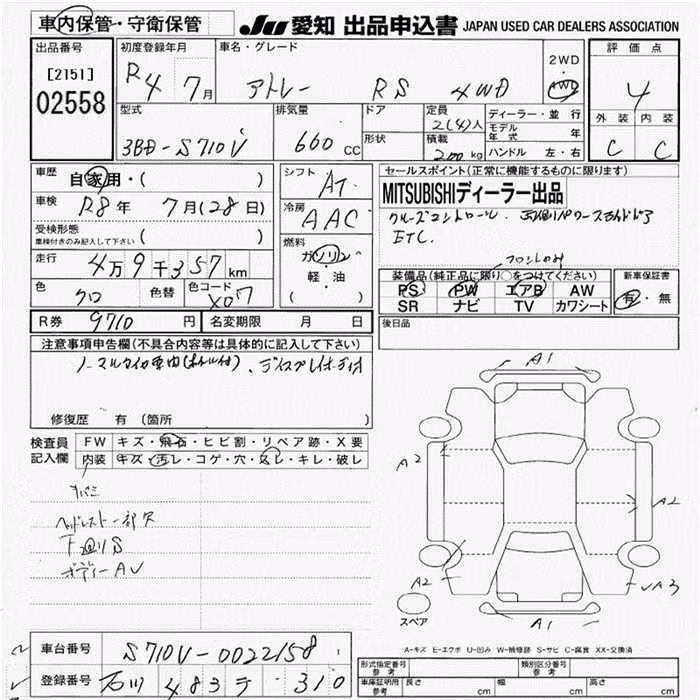 車内保管・守衛保管
JU 愛知 出品申込書 JAPAN USED CAR DEALERS ASSOCIATION
出品番号
[2151]
02558
初度登録年月
R4 7月
車名・グレード
アトレー RS 4WD
2WD
・
4WD
評価点
4
外装 内装
C C
型式
3BD-S710V
排気量
660 CC
ドア
形状
定員
2(4)人
積載
200kg
ディーラー・並行
モデル年式 年
ハンドル 左・右
車歴
自家用・( )
車検
R8年 7月(28日)
受検形態
車検付きのみ記入して下さい ( )
走行
4万9千357km
色
クロ
色替
色コード
X07
シフト
AT
冷房
AAC
燃料
ガソリン
軽・油
( )
セールスポイント(正常に機能するものに限ります)
MITSUBISHIディーラー出品
クルーズコントロール.
ETC.
フロントのみ
装備品(純正品に限り○をつけてください)
PS PW エアB AW
SR ナビ TV カワシート
新車保証書
有・無
R券 9710円
名変期限 月 日
後日品
注意事項申告欄(不具合内容等は具体的に記入して下さい)
ノーマルタイヤ車内(ホイル付)、ディスプレイオーディオ
修復歴 有(箇所
検査員記入欄
FW キズ・飛石・ヒビ割・リペア跡・X要
内装 キズ・汚レ・コゲ・穴・スレ・キレ・破レ
ヘッドレスト一部欠
下回りS
ボディーAV
A1
A2
A2
A2
A3
A1
スペア
A-キズ E-エクボ U-凹み W-補修跡 S-サビ C-腐食 XX-交換済
車台番号 S710V-0022158
登録番号 石川 483 テ ・310
形式指定番号
参考
類別区分番号
参考
車庫証明用
参考
長さ cm 幅 cm 高さ cm